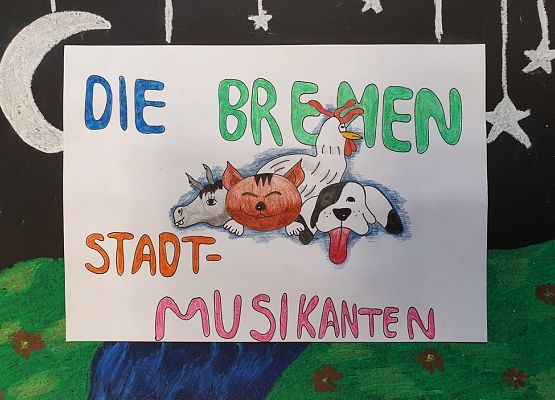 DIE BREMEN
STADT-
MUSIKANTEN